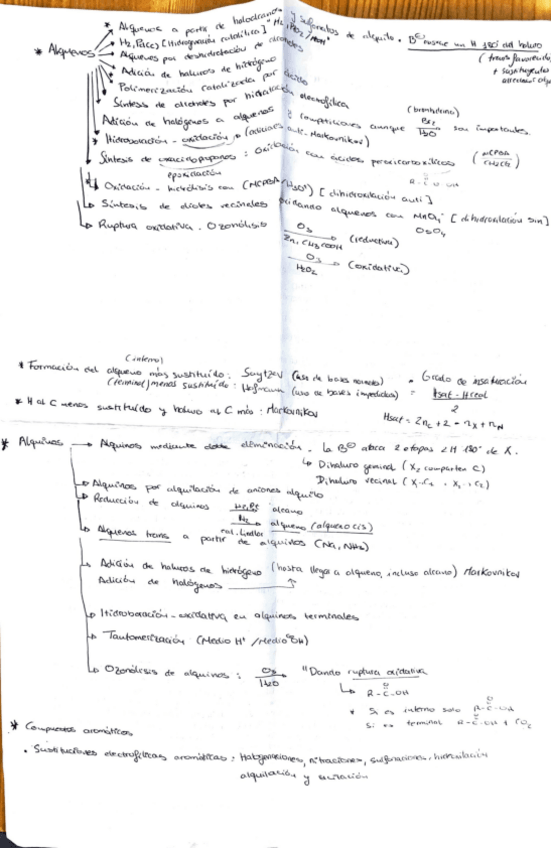 * Alquenos
Alquenos a partir de haloalcanos y sulfonatos de alquilo. B⊖ sustrae un H 180° del haluro
H2, Pd/C) [Hidrogenación catalítica] "H2, PtO2 / MeOH" (trans favorecido,
Alquenos por deshidratación de alcoholes + sustituyentes
Adición de haluros de hidrógeno
Polimerización catalizada por ácido
Síntesis de alcoholes por hidratación electrofílica
Adición de halógenos a alquenos (bromhidrina) Br2 / H2O son importantes.
Hidroboración - oxidación (adiciones anti-Markovnikov)
Síntesis de oxaciclopropanos : Oxidación con ácidos peroxicarboxílicos (MCPBA / CH2Cl2)
epoxidación
Oxidación - hidrólisis con (MCPBA/H3O+) [dihidroxilación anti]
Síntesis de dioles vecinales oxidando alquenos con MnO4- [dihidroxilación sin]
OsO4
Ruptura oxidativa. Ozonólisis O3 / Zn, CH3COOH → (reductiva)
O3 / H2O2 → (oxidativa)
(interno)
* Formación del alqueno más sustituido: Saytzev (uso de bases normales) • Grado de insaturación
(terminal) menos sustituido: Hofmann (uso de bases impedidas) = Hsat - Hreal / 2
* H al C menos sustituido y haluro al C más: Markovnikov Hsat = 2nc + 2 - nx + nN
* Alquinos → Alquinos mediante doble eliminación. La B⊖ ataca 2 etapas 2H 180° de X.
↳ Dihaluro geminal (X2 comparten C)
Dihaluro vecinal (X1-C1 , X2-C2)
Alquinos por alquilación de aniones alquilo
Reducción de alquinos H2, Pt → alcano
H2 / cat. Lindlar → alqueno (alqueno cis)
Alquenos trans a partir de alquinos (Na, NH3)
Adición de haluros de hidrógeno (hasta llegar a alqueno, incluso alcano) Markovnikov
Adición de halógenos
Hidroboración - oxidativa en alquinos terminales
Tautomerización (Medio H+ / Medio OH)
Ozonólisis de alquinos : O3 / H2O → "Dando ruptura oxidativa
↳ R-C-OH
* Si es interno solo R-C-OH
Si es terminal R-C-OH + CO2
* Compuestos aromáticos
• Sustituciones electrofílicas aromáticas : Halogenaciones, nitraciones, sulfonaciones,
alquilación y acilación